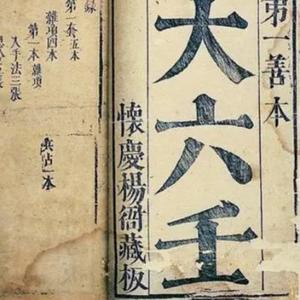 第一善本
大六壬
懷慶楊衙藏板
錄
第一套五本
雜項四本
第一本雜項
入手法三張
兵占一本